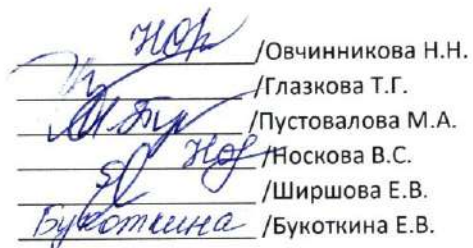 /Овчинникова Н.Н.
/Глазкова Т.Г.
/Пустовалова М.А.
/Носкова В.С.
/Ширшова Е.В.
Букоткина /Букоткина Е.В.